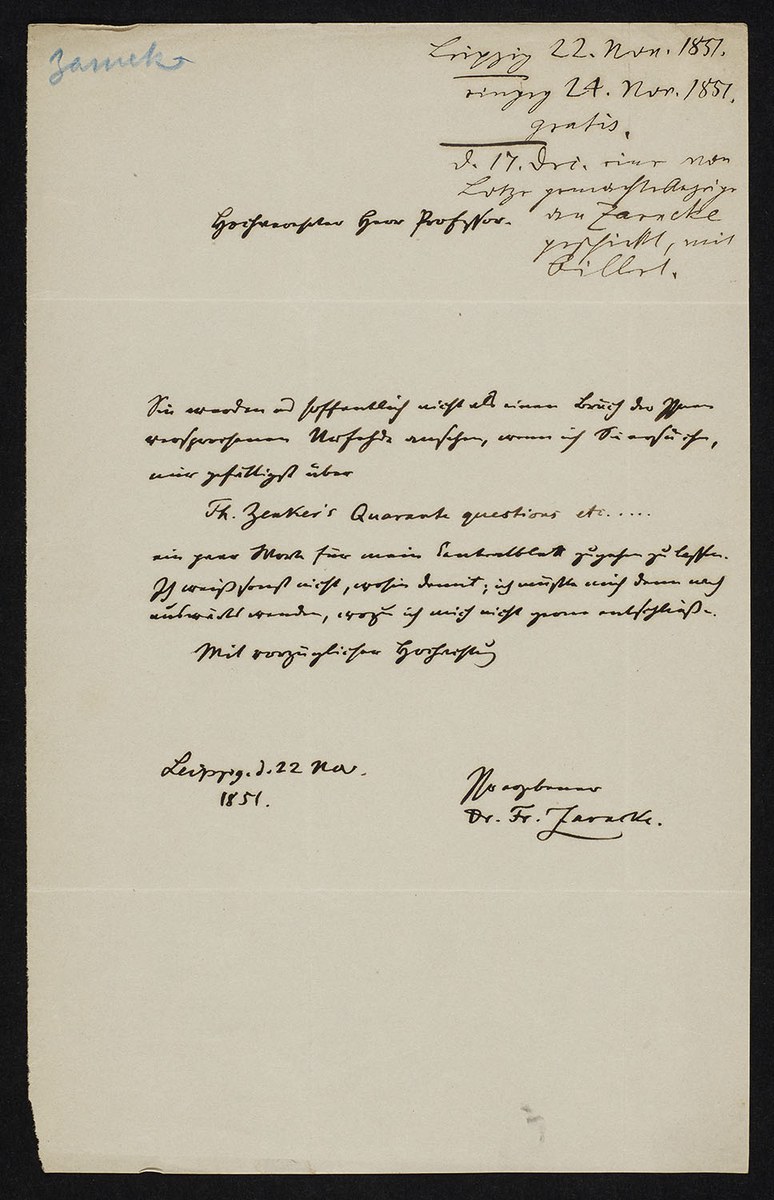 Zarncke
Leipzig 22. Nov. 1851.
eingeg 24. Nov. 1851.
gratis.
d. 17. Dec. eine von
Lotze gemachte Anzeige
an Zarncke
geschickt, mit
Billet.
Hochverehrter Herr Professor.
Sie werden es hoffentlich nicht als einen Bruch der Ihnen
versprochenen Urfehde ansehen, wenn ich Sie ersuche,
mir gefälligst über
Th. Zenker's Quarante questions etc.....
ein paar Worte für mein Centralblatt zugehen zu lassen.
Ich weiß sonst nicht, wohin damit; ich müßte mich denn nach
auswärts wenden, wozu ich mich nicht gerne entschließe.
Mit vorzüglicher Hochachtung
Leipzig. d. 22 Nov.
1851.
Ihr ergebener
Dr. Fr. Zarncke.